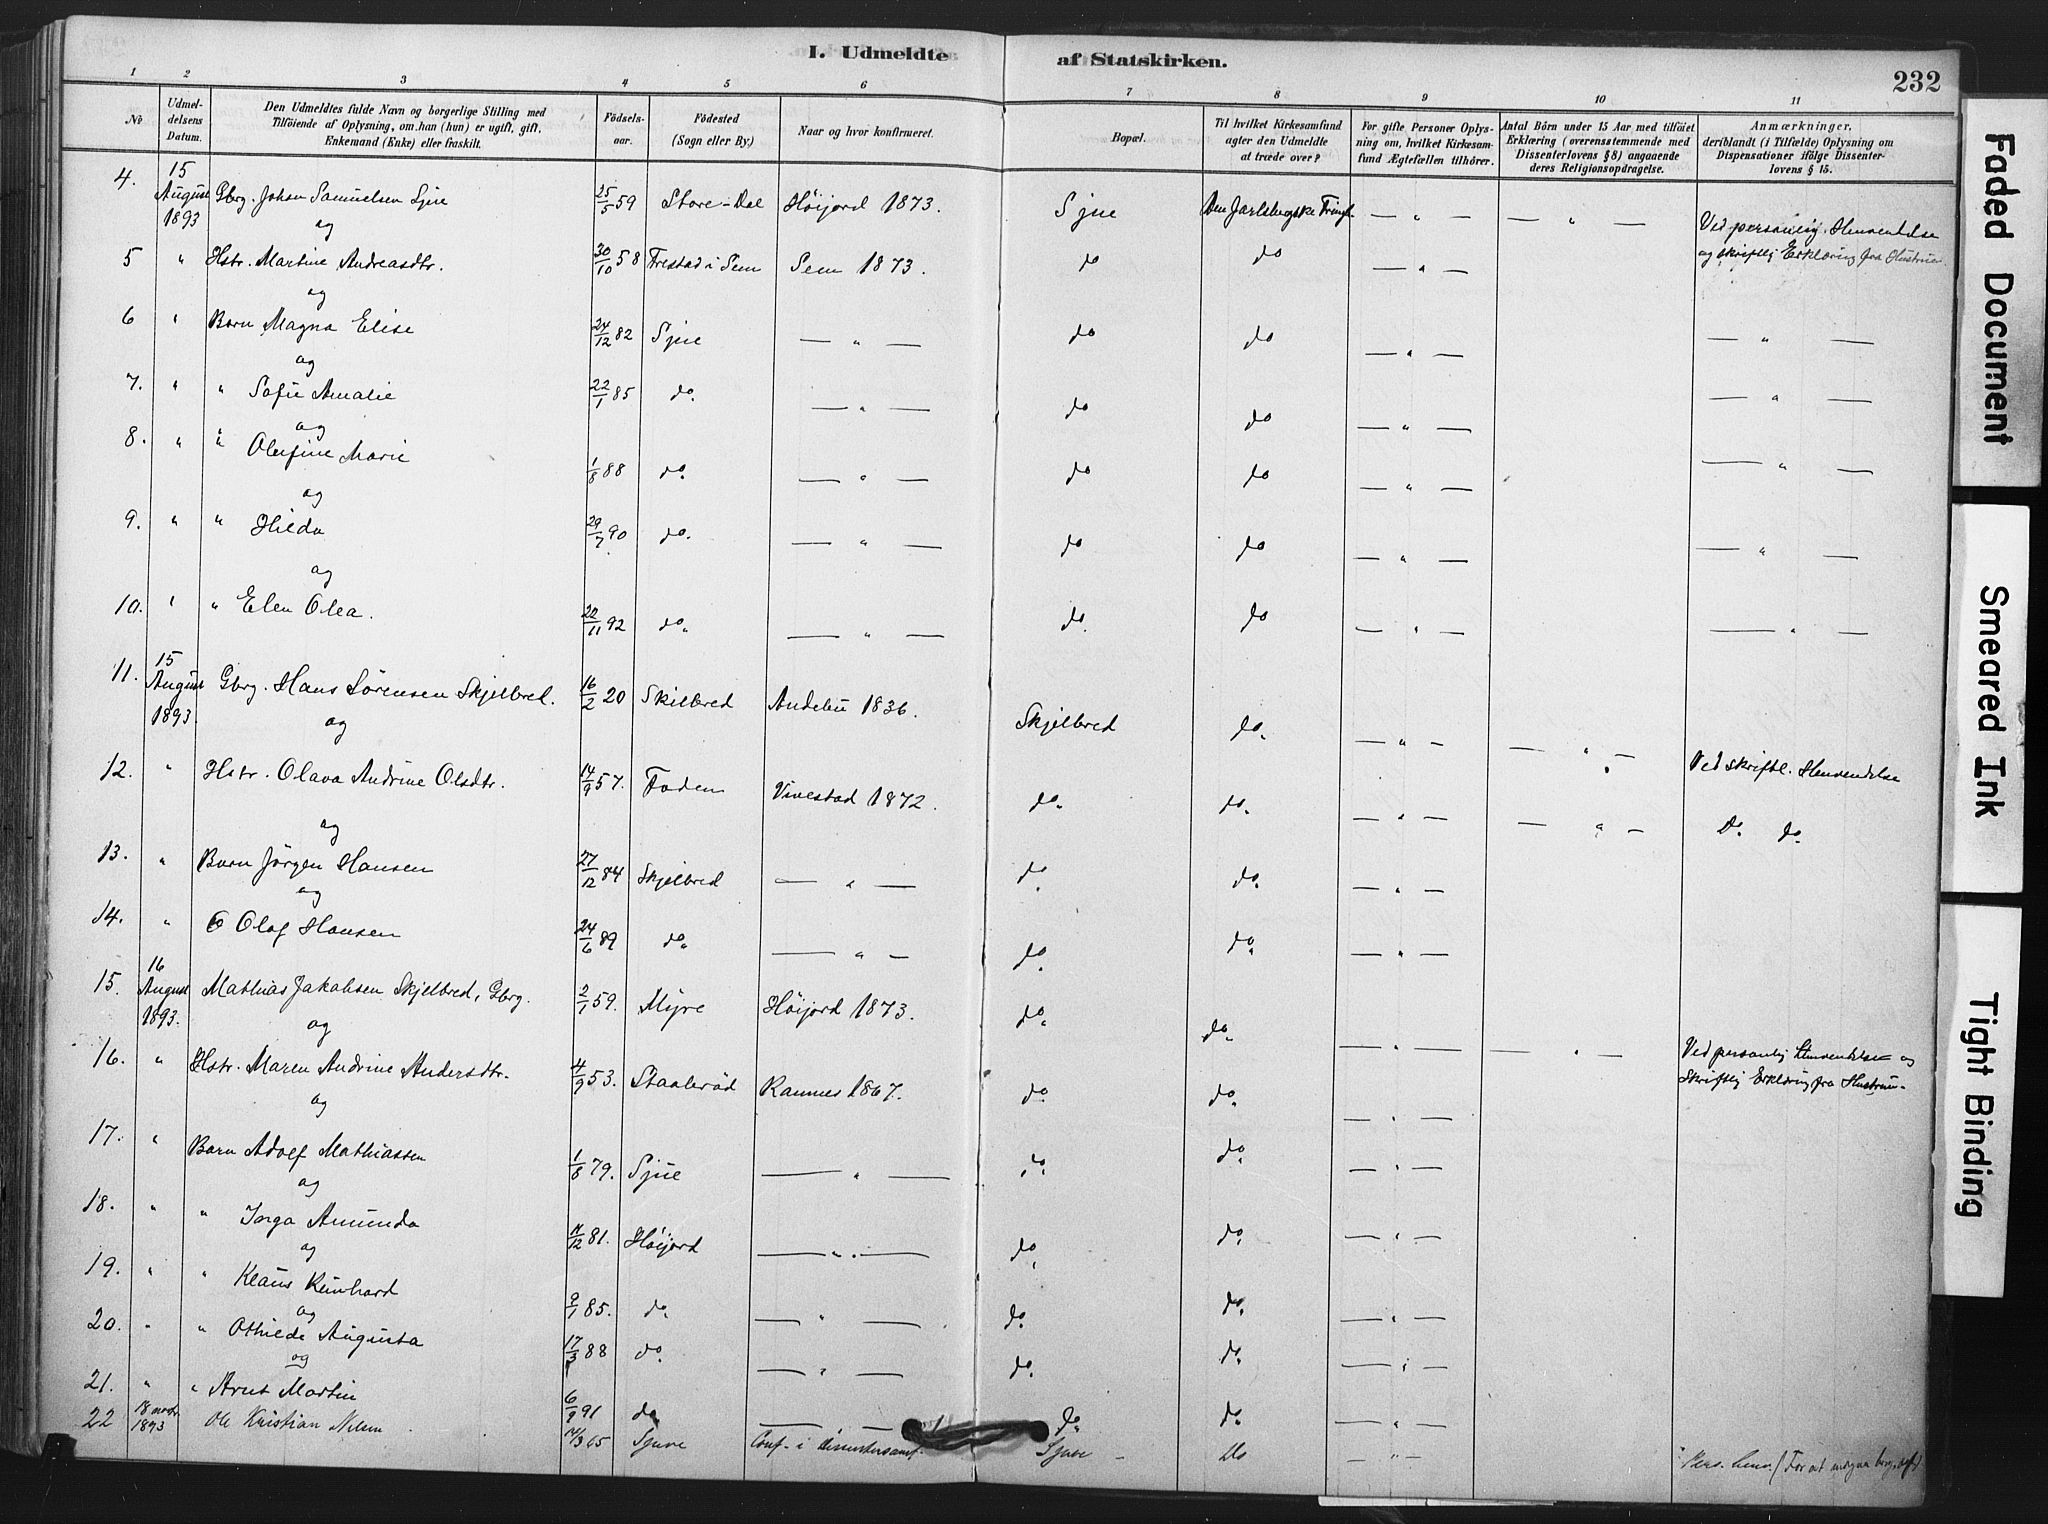 I. Udmeldte af Statskirken.
232
1 2 3 4 5 6 7 8 9 10 11
No
Udmeldelsens Datum.
Den Udmeldtes fulde Navn og borgerlige Stilling med Tilföiende af Oplysning, om han (hun) er ugift, gift, Enkemand (Enke) eller fraskilt.
Födselsaar.
Födested (Sogn eller By.)
Naar og hvor konfirmeret.
Bopæl.
Til hvilket Kirkesamfund agter den Udmeldte at træde over?
For gifte Personer Oplysning om, hvilket Kirkesamfund Ægtefællen tilhörer.
Antal Börn under 15 Aar med tilföiet Erklæring (overensstemmende med Dissenterlovens § 8) angaaende deres Religionsopdragelse.
Anmærkninger, deriblandt (i Tilfælde) Oplysning om Dispensationer ifölge Dissenterlovens § 15.
4. 15 August 1893 Gbrg. Johan Samuelsen Sjue 25/5 59 Store-Dal Höijord 1873. Sjue Den Jarlsbergske Frimgh. — " — — " — Ved personlig Henvendelse
og
5 " Hstr. Martine Andreasdtr. 30/10 58 Frestad i Sem Sem 1873. do do — " — og skriftlig Erklæring fra Hustruen
og
6 " Barn Magna Elise 24/12 82 Sjue — " — do do — " — — " —
og
7. " " Sofie Amalie 22/1 85 do. — " — do do — " — — " —
og
8. " " Olufine Marie 1/8 88 do. — " — do do — " — — " —
og
9. " " Hilda 29/7 90 do. — " — do do — " — — " —
og
10. " " Elen Olea. 22/11 92 do. — " — do. do — " — — " —
11. 15 August 1893. Gbrg. Hans Sörensen Skjelbred. 16/2 20 Skilbred Andebu 1836. Skjelbred do. — " — — " — Ved skriftl. Henvendelse
og
12. " Hstr. Olava Andrine Olsdtr. 14/9 57. Foden Vivestad 1872. do. do. — " — — " — Do. do.
og
13. " Barn Jörgen Hansen 27/12 84 Skjelbred — " — do. do. — " —
og
14. " Olaf Hansen 24/6 89 do. — " — do. do. — " —
15. 16 August 1893. Mathias Jakobsen Skjelbred, Gbrg. 2/1 59. Myre Höijord 1873. do. do. — " — — " — Ved personlig Henvendelse og
og
16. " Hstr. Maren Andrine Andersdtr. 4/9 53. Staaleröd Ramnes 1867. do. do. — " — skriftlig Erklæring fra Hustruen.
og
17. " Barn Adolf Mathiassen 1/8 79. Sjue — " — do. do. — " —
og
18. " " Inga Amunda 11/12 81. Höijord — " — do. do. — " —
og
19. " " Klaus Reinhard 9/1 85. do. — " — do. do. — " —
og
20. " " Othilde Augusta 17/3 88 do. — " — do. do. — " —
og
21. " " Arnt Martin 6/9 91 do. — do. do. — " —
22 18 1893 Ole Kristian Nilsen 14/3 65 Sjuve Conf. i dissentersamf. Sjuve Do — " — Pers. henv.
Faded Document
Smeared Ink
Tight Binding